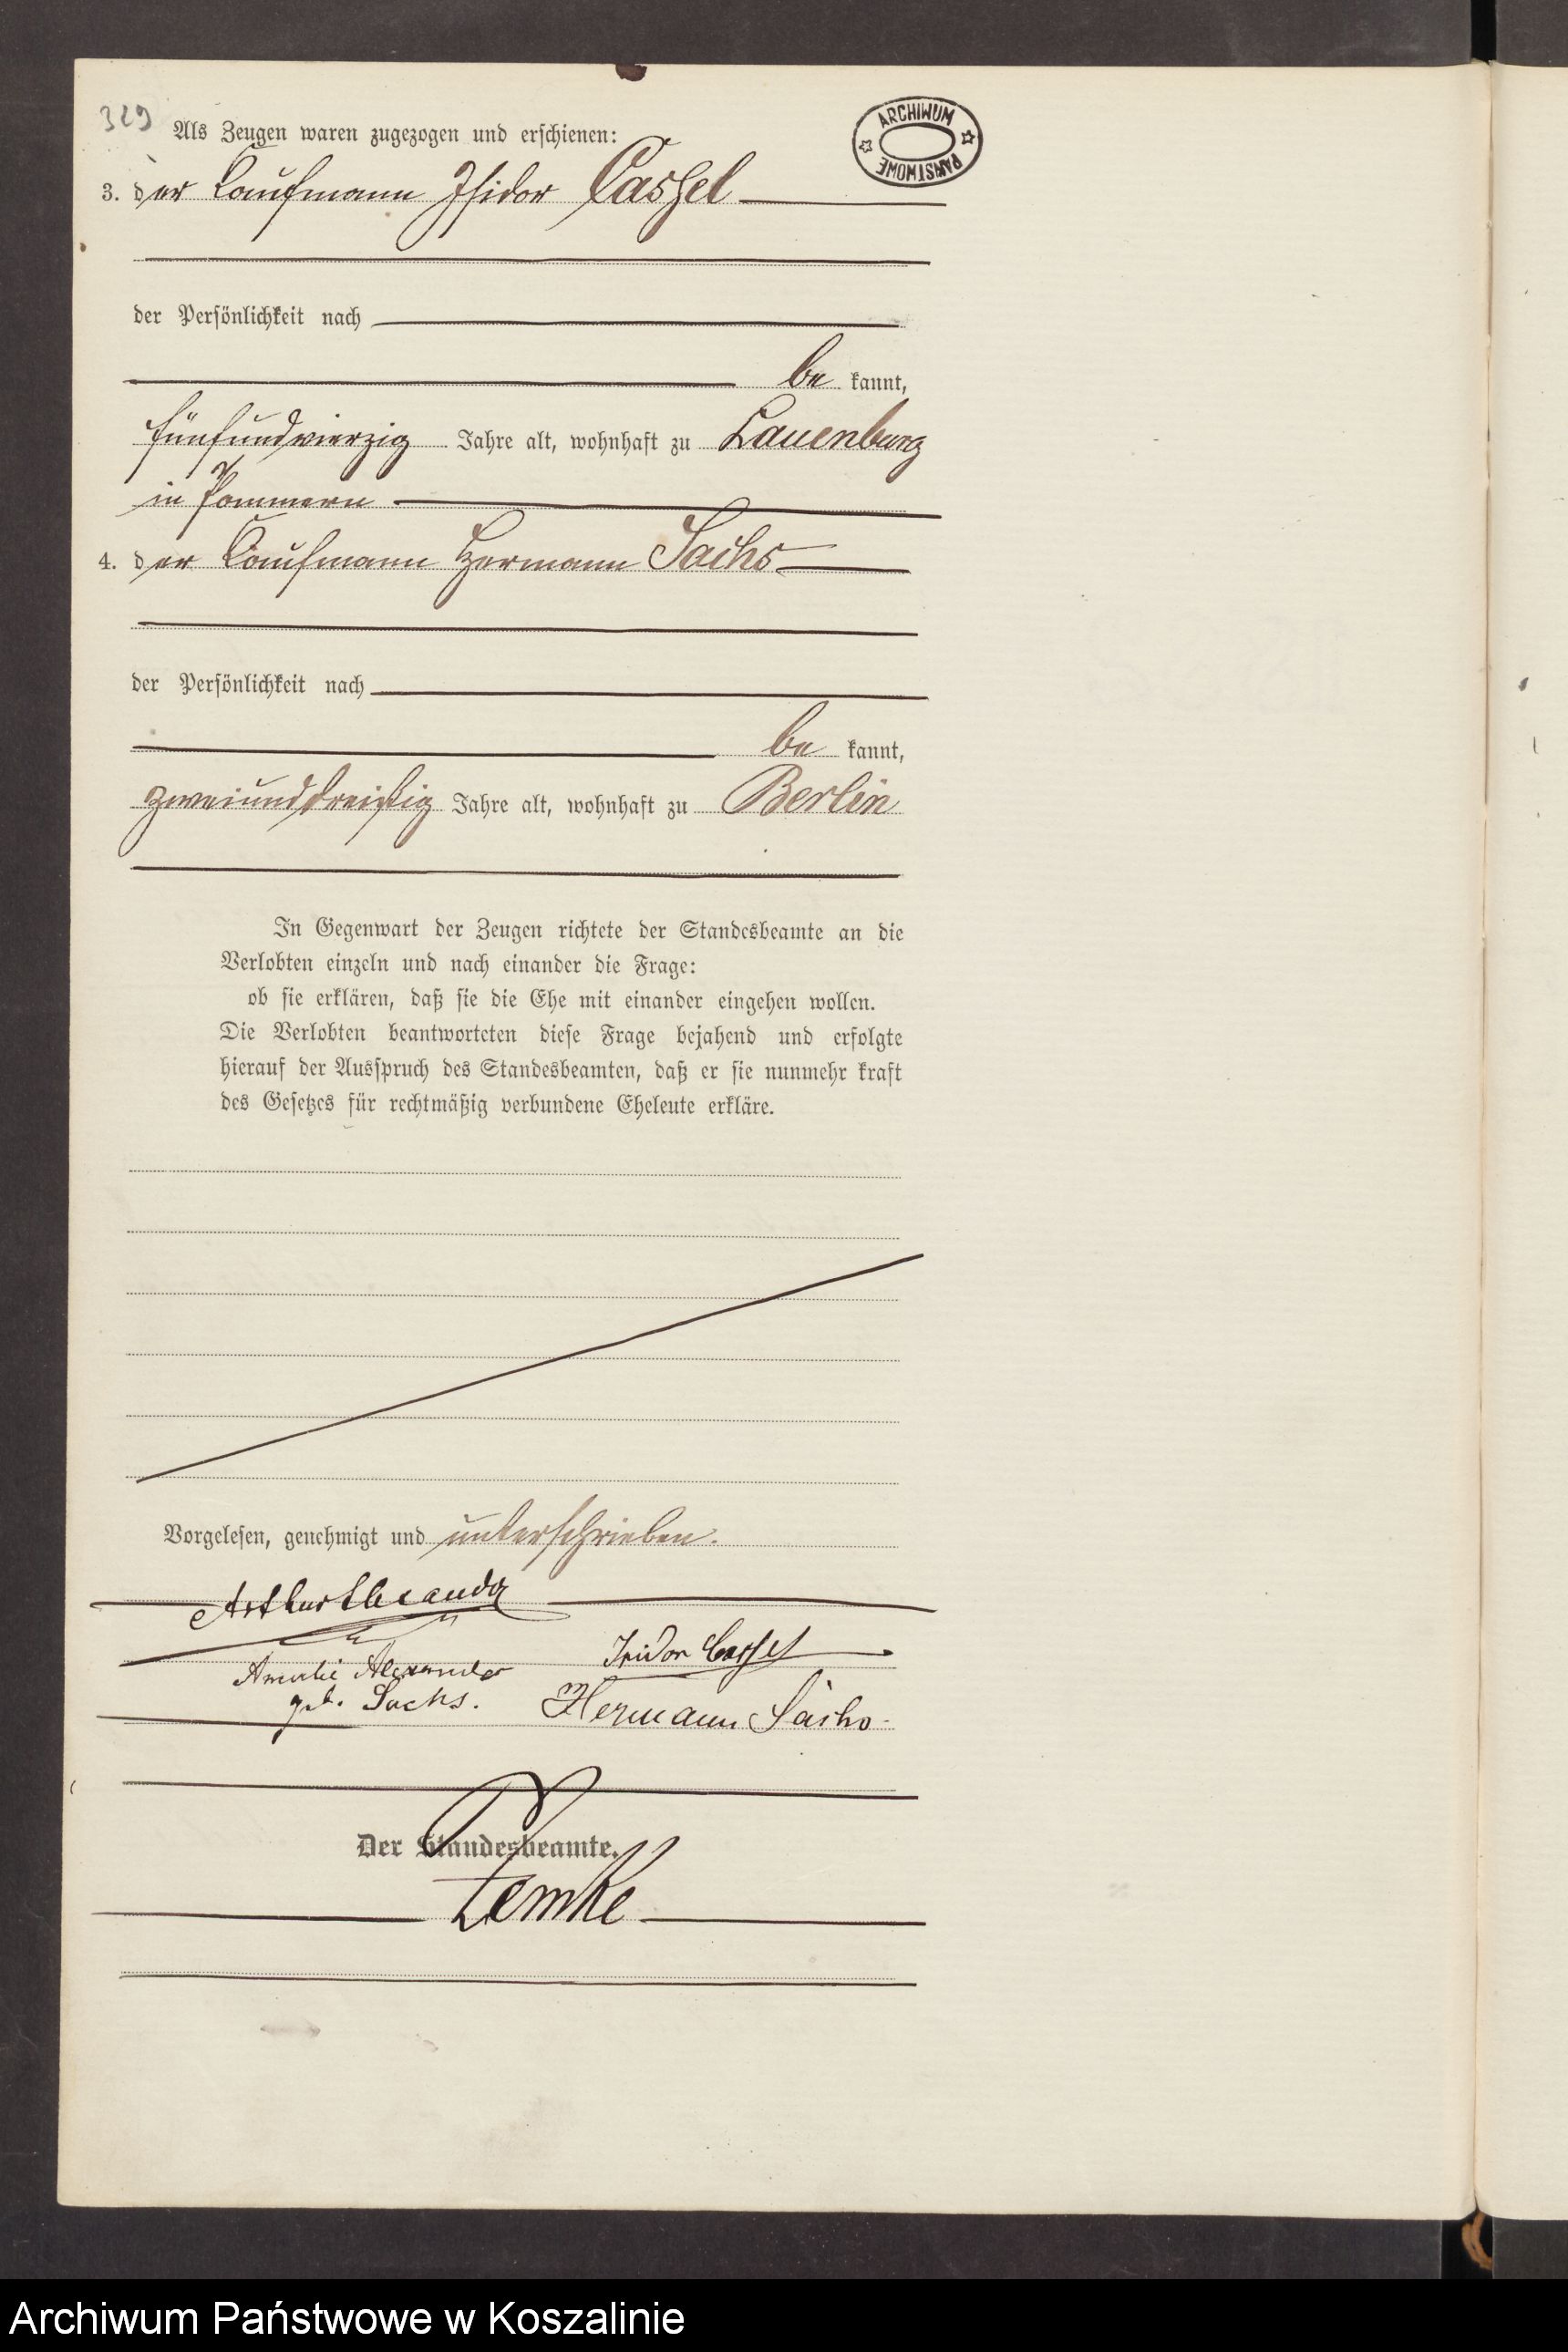 329
Als Zeugen waren zugezogen und erschienen:
ARCHIWUM PAŃSTWOWE
3. der Kaufmann Isidor Cassel
der Persönlichkeit nach
be kannt,
fünfundvierzig Jahre alt, wohnhaft zu Lauenburg
in Pommern
4. der Kaufmann Hermann Sachs
der Persönlichkeit nach
be kannt,
zweiunddreißig Jahre alt, wohnhaft zu Berlin
In Gegenwart der Zeugen richtete der Standesbeamte an die
Verlobten einzeln und nach einander die Frage:
ob sie erklären, daß sie die Ehe mit einander eingehen wollen.
Die Verlobten beantworteten diese Frage bejahend und erfolgte
hierauf der Ausspruch des Standesbeamten, daß er sie nunmehr kraft
des Gesetzes für rechtmäßig verbundene Eheleute erkläre.
Vorgelesen, genehmigt und unterschrieben.
Arthur Alexander
Amalie Alexander
geb. Sachs.
Isidor Cassel
Hermann Sachs
Der Standesbeamte.
Lemke
Archiwum Państwowe w Koszalinie